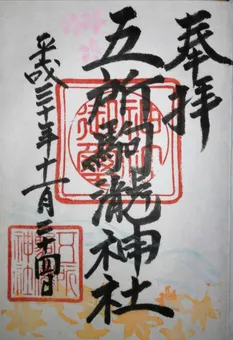 奉拝
五所駒瀧神社
平成三十年十一月二十四日